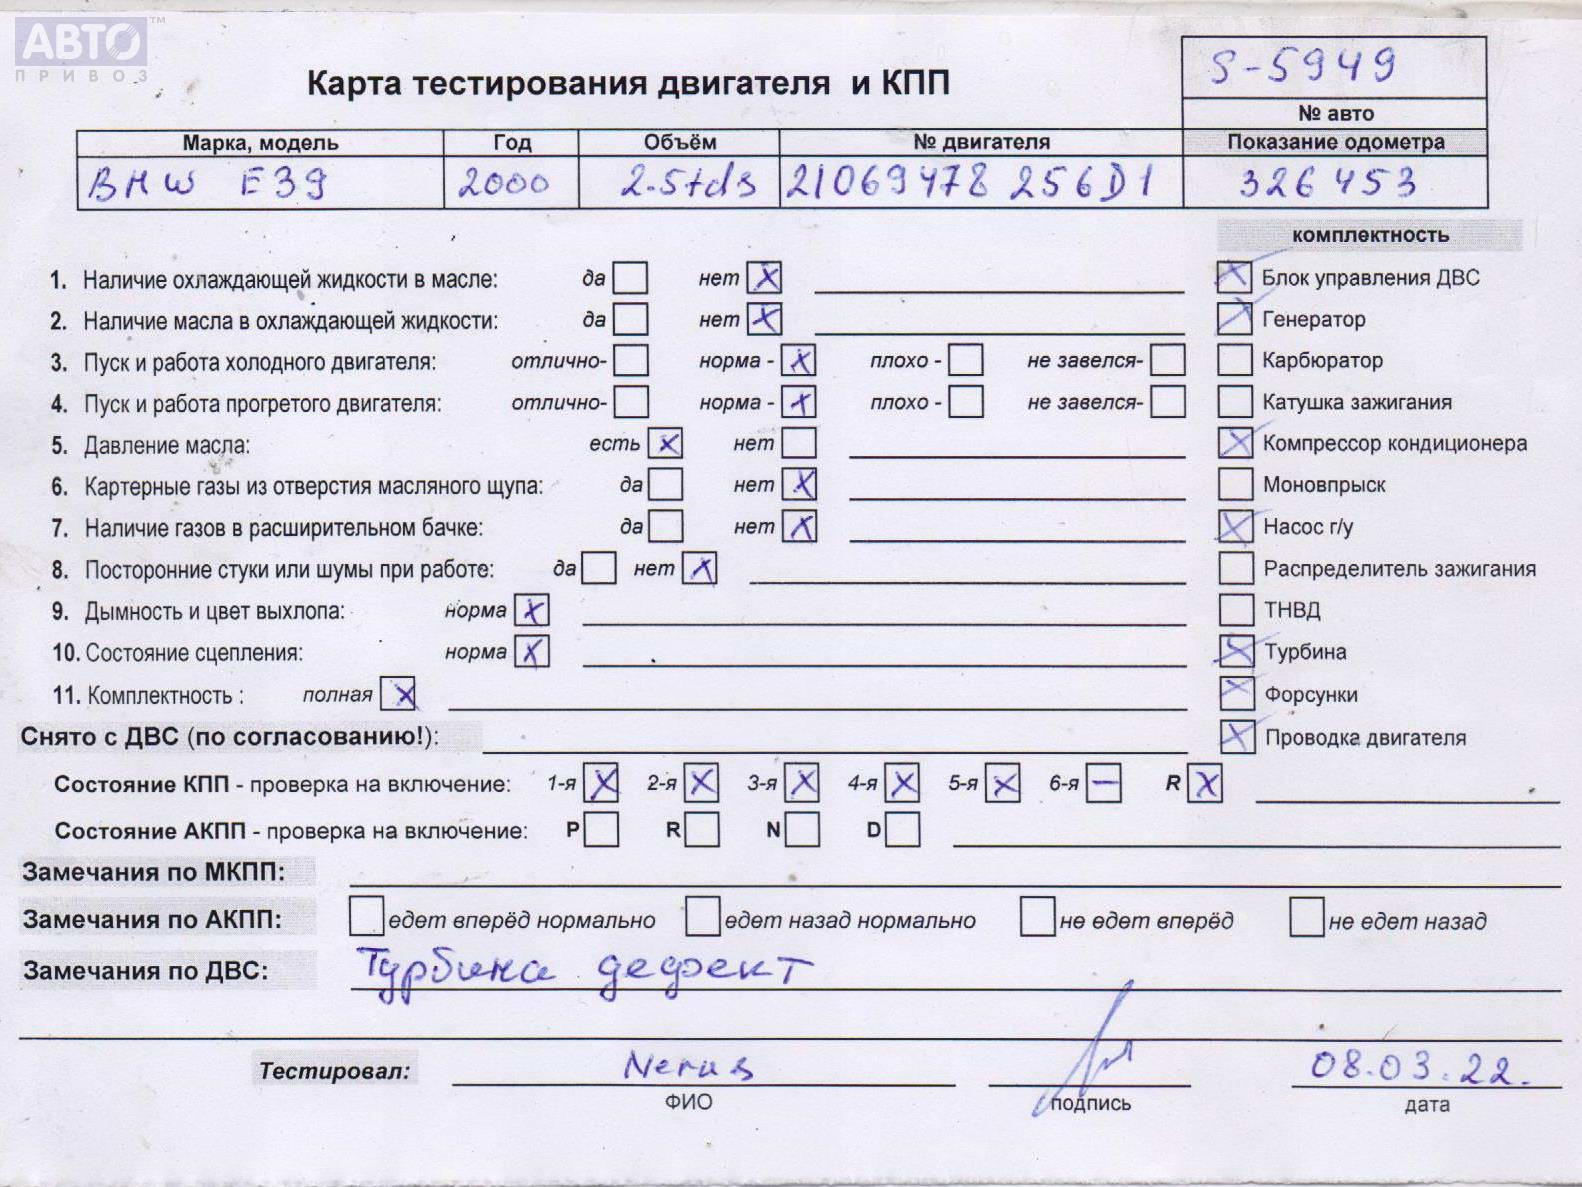 АВТО™
ПРИВОЗ
S-5949
Карта тестирования двигателя и КПП
№ авто
Марка, модель Год Объём № двигателя Показание одометра
BMW E39 2000 2.5tds 21069478 256D1 326453
комплектность
1. Наличие охлаждающей жидкости в масле: да нет X Блок управления ДВС
2. Наличие масла в охлаждающей жидкости: да нет X Генератор
3. Пуск и работа холодного двигателя: отлично- норма - X плохо - не завелся- Карбюратор
4. Пуск и работа прогретого двигателя: отлично- норма - X плохо - не завелся- Катушка зажигания
5. Давление масла: есть X нет Компрессор кондиционера
6. Картерные газы из отверстия масляного щупа: да нет X Моновпрыск
7. Наличие газов в расширительном бачке: да нет X Насос г/у
8. Посторонние стуки или шумы при работе: да нет X Распределитель зажигания
9. Дымность и цвет выхлопа: норма X ТНВД
10. Состояние сцепления: норма X Турбина
11. Комплектность : полная X Форсунки
Снято с ДВС (по согласованию!): Проводка двигателя
Состояние КПП - проверка на включение: 1-я X 2-я X 3-я X 4-я X 5-я X 6-я — R X
Состояние АКПП - проверка на включение: P R N D
Замечания по МКПП:
Замечания по АКПП: едет вперёд нормально едет назад нормально не едет вперёд не едет назад
Замечания по ДВС: Турбина дефект
Тестировал: Nerus 08.03.22.
ФИО подпись дата